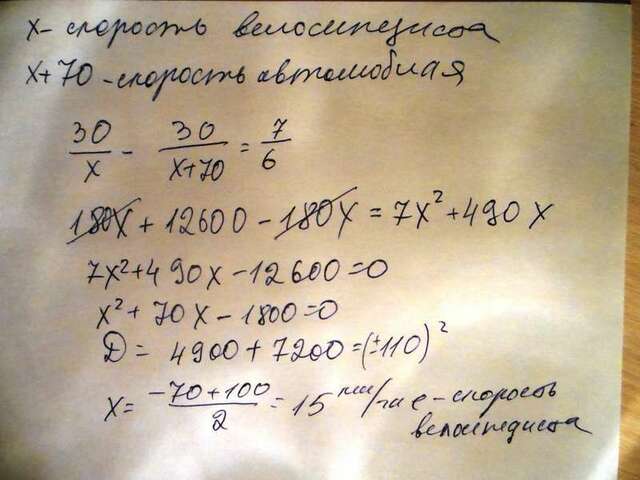 x - скорость велосипедиста
x + 70 - скорость автомобиля
30/x - 30/(x+70) = 7/6
180x + 12600 - 180x = 7x² + 490x
7x² + 490x - 12600 = 0
x² + 70x - 1800 = 0
D = 4900 + 7200 = (±110)²
x = (-70 + 100)/2 = 15 км/час - скорость
велосипедиста